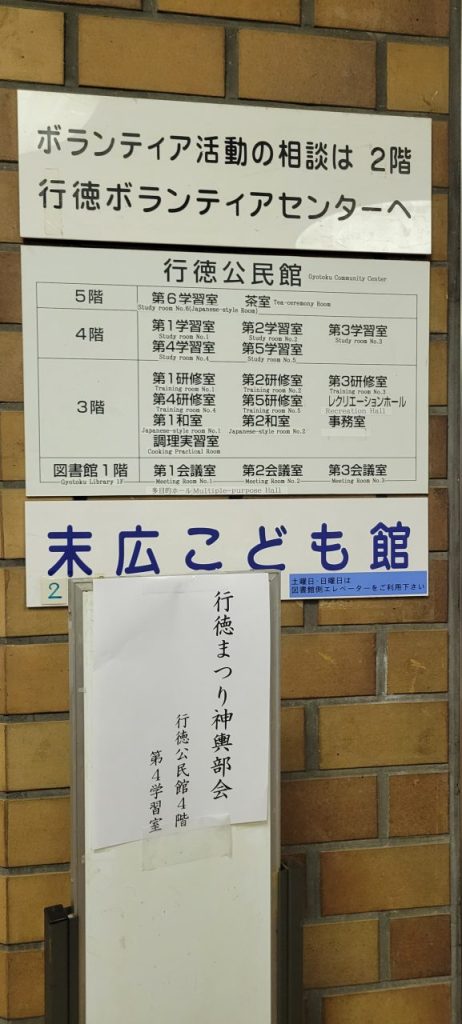 ボランティア活動の相談は 2階
行徳ボランティアセンターへ
行徳公民館 Gyotoku Community Center
5階 第6学習室 茶室 Tea-ceremony Room
Study room No.6(Japanese-style Room)
4階 第1学習室 第2学習室 第3学習室
Study room No.1 Study room No.2 Study room No.3
第4学習室 第5学習室
Study room No.4 Study room No.5
3階 第1研修室 第2研修室 第3研修室
Training room No.1 Training room No.2 Training room No.3
第4研修室 第5研修室 レクリエーションホール
Training room No.4 Training room No.5 Recreation Hall
第1和室 第2和室 事務室
Japanese-style room No.1 Japanese-style room No.2
調理実習室
Cooking Practical Room
図書館1階 第1会議室 第2会議室 第3会議室
Gyotoku Library 1F Meeting Room No.1 Meeting Room No.2 Meeting Room No.3
多目的ホール Multiple-purpose Hall
末広こども館
2
土曜日・日曜日は
図書館側エレベーターをご利用下さい
行徳まつり神輿部会
行徳公民館4階
第4学習室